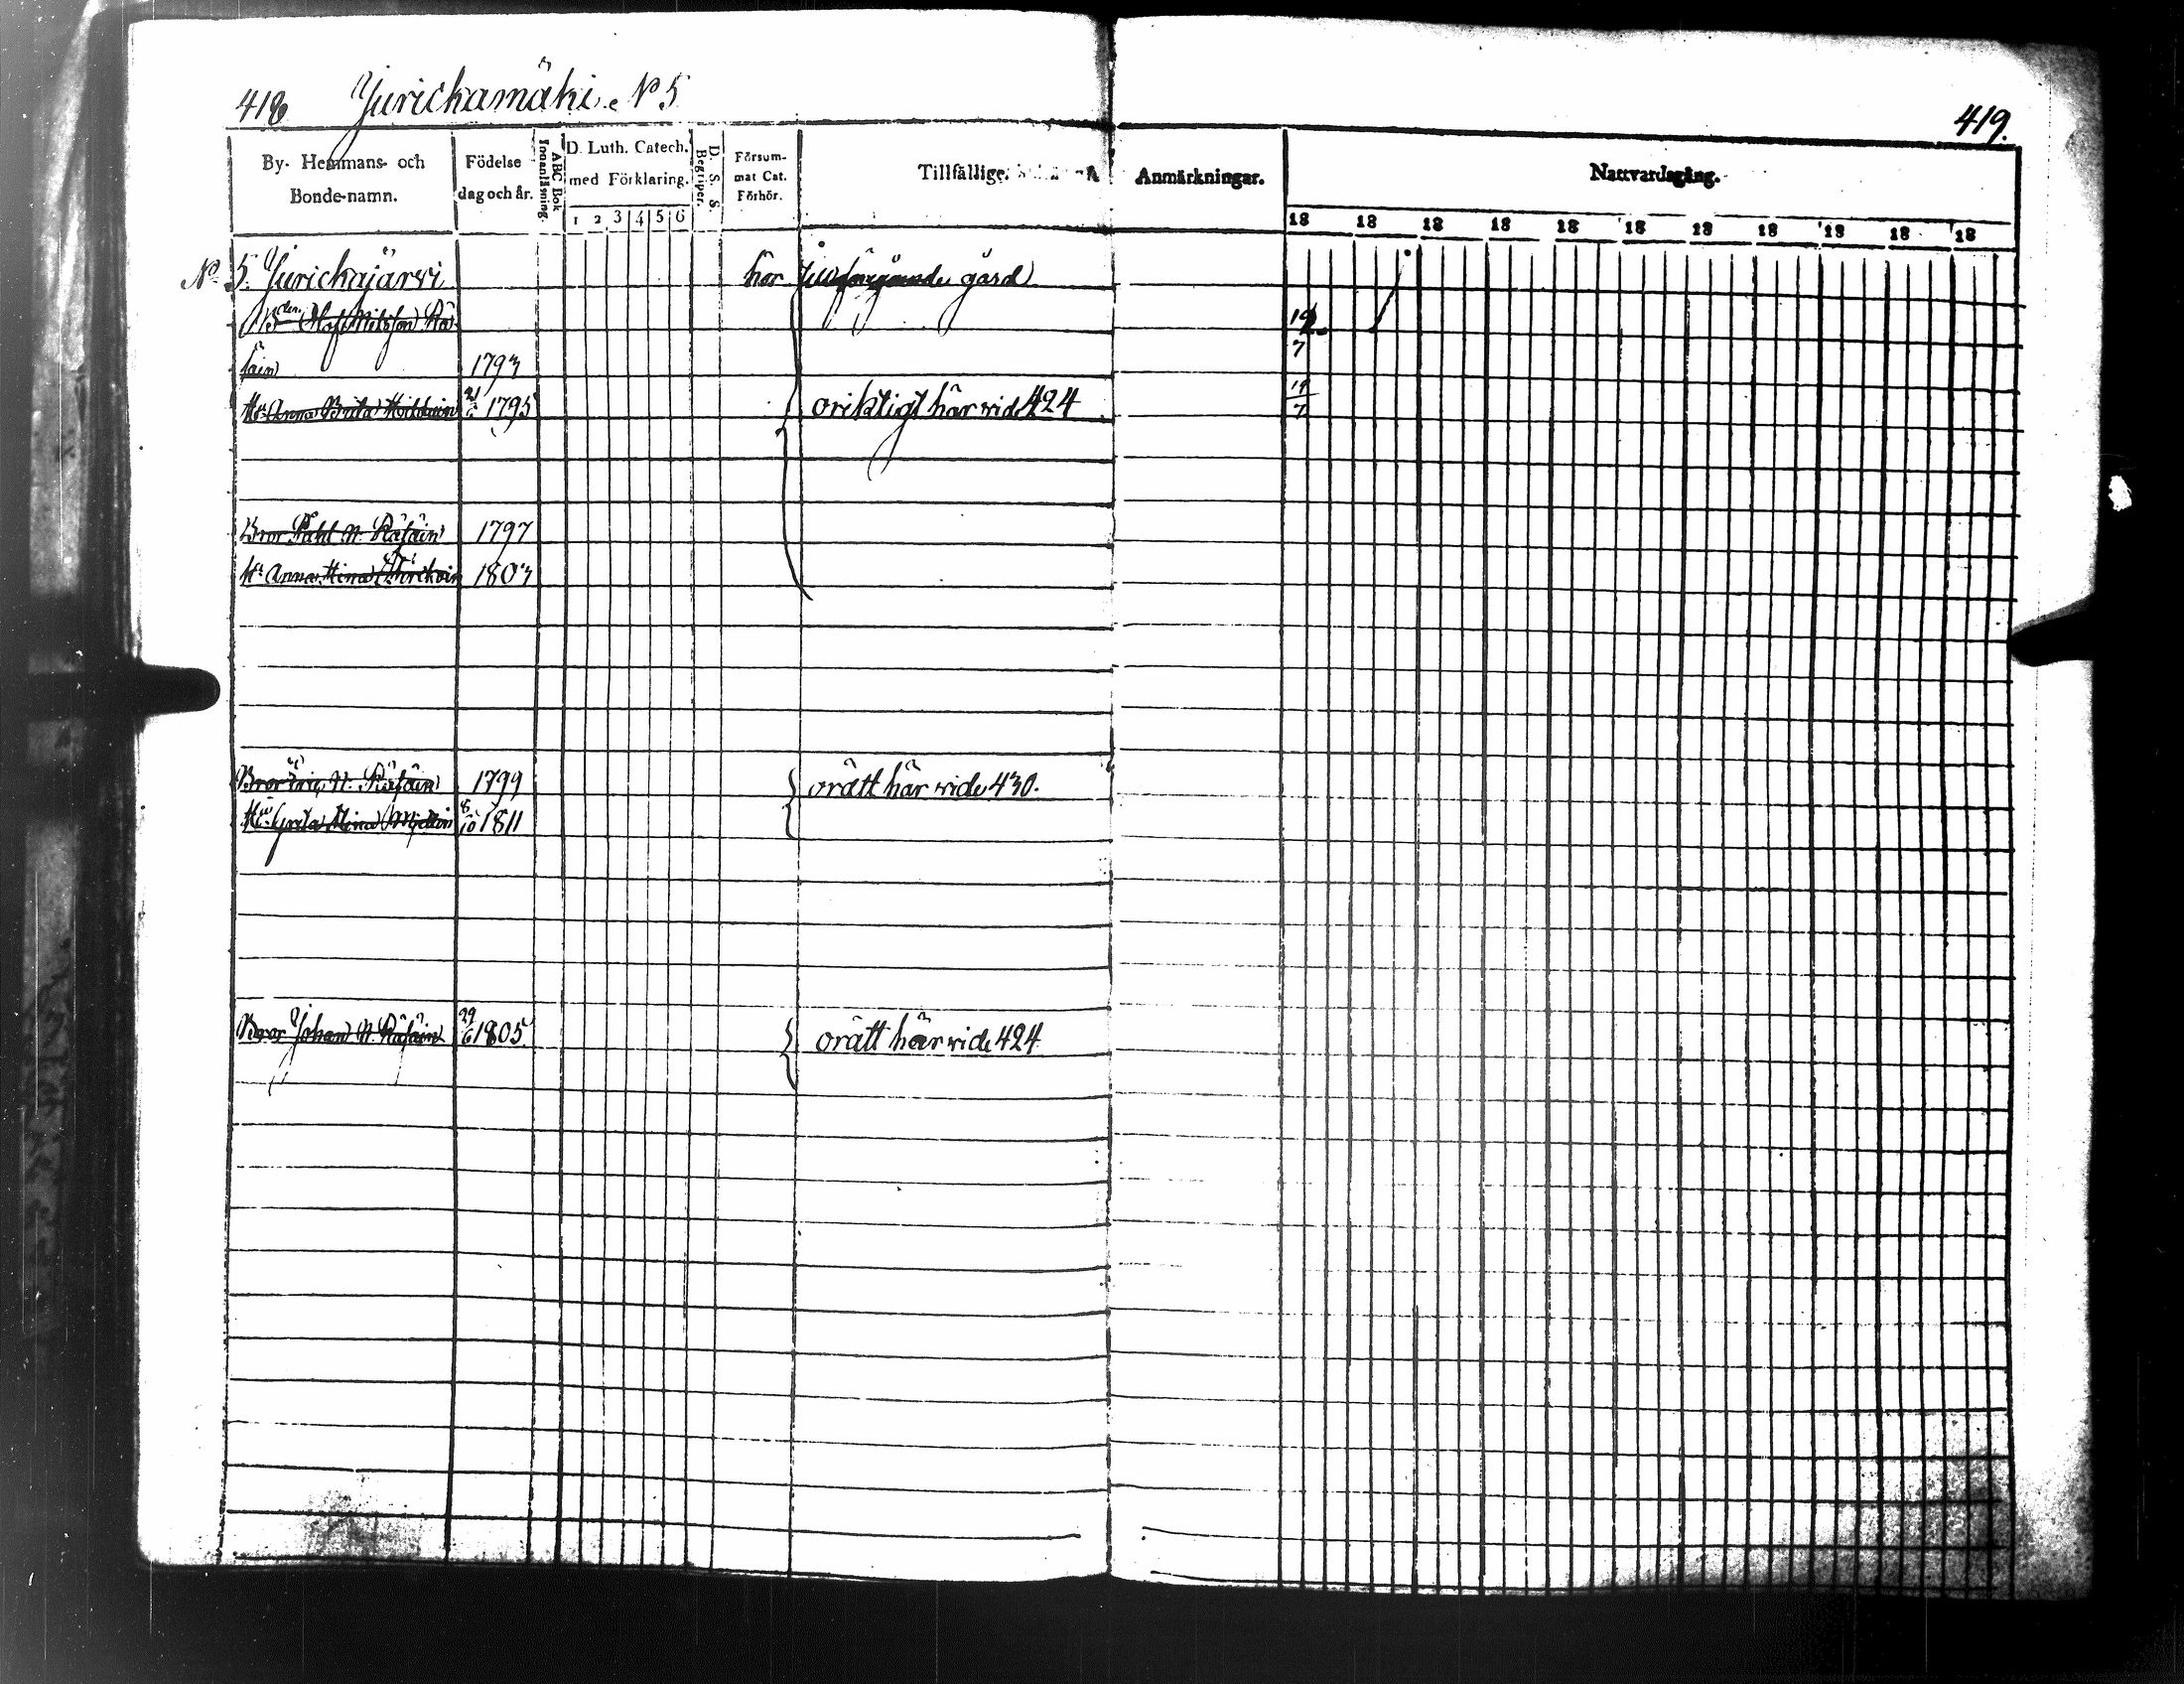 418 Jurickamäki. N° 5
419.
By- Hemmans- och Bonde-namn.
Födelse dag och år.
ABC Bok Innanläsning.
D. Luth. Catech. med Förklaring.
1 2 3 4 5 6
D. S. S. Begriper.
Försum- mat Cat. Förhör.
Tillfällige
Anmärkningar.
Nattvardsgång.
18 18 18 18 18 18 18 18 18 18 18
N° 5. Jurickajärvi hör gård
Bden Olof Nilsson Rä- 19
säin 1793 7
Hu Anna Brita 21 1795 oriktigt här vide 424 19/7
Bror Påhl N. Räsäin 1797
Hu Anna Stina 1803
Bror Eric N. Räsäin 1799 orätt här vide 430.
Hu Greta Stina 8/10 1811
Bror Johan N. Räsäin 29/6 1805 orätt här vide 424